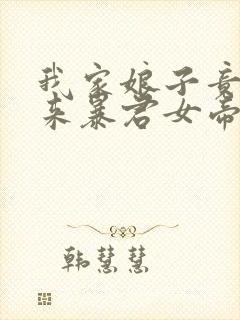 我家娘子竟
来暴君女帝
韩慧慧